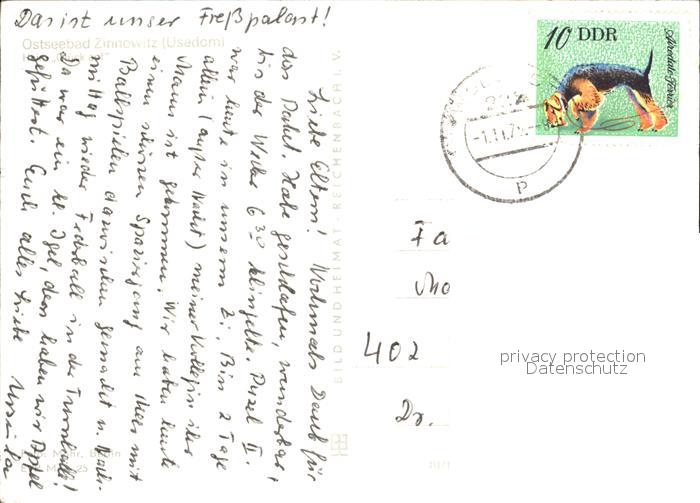 Das ist unser Freßpalast!
Ostseebad Zinnowitz (Usedom)
Liebe Eltern! Nochmals Dank für
das Paket. Habe geschlafen, wunderbar,
bis der Wecker 6 30 klingelte. Pusel II.
war heute in unserem Zi. Bin 2 Tage
allein (außer Nacht) meiner Kollegin ihr
Mann ist gekommen. Wir haben heute
einen schönen Spaziergang am Meer mit
Ballspielen dazwischen gemacht u. Nach-
mittag wieder Federball in der Turnhalle!
Da war ein kl. Igel, den haben wir Äpfel
gefüttert. Euch alles Liebe
BILD UND HEIMAT · REICHENBACH I. V.
10 DDR
Airedale-Terrier
-1.11.7
P
Fa
Mo
402
Dr.
privacy protection
Datenschutz